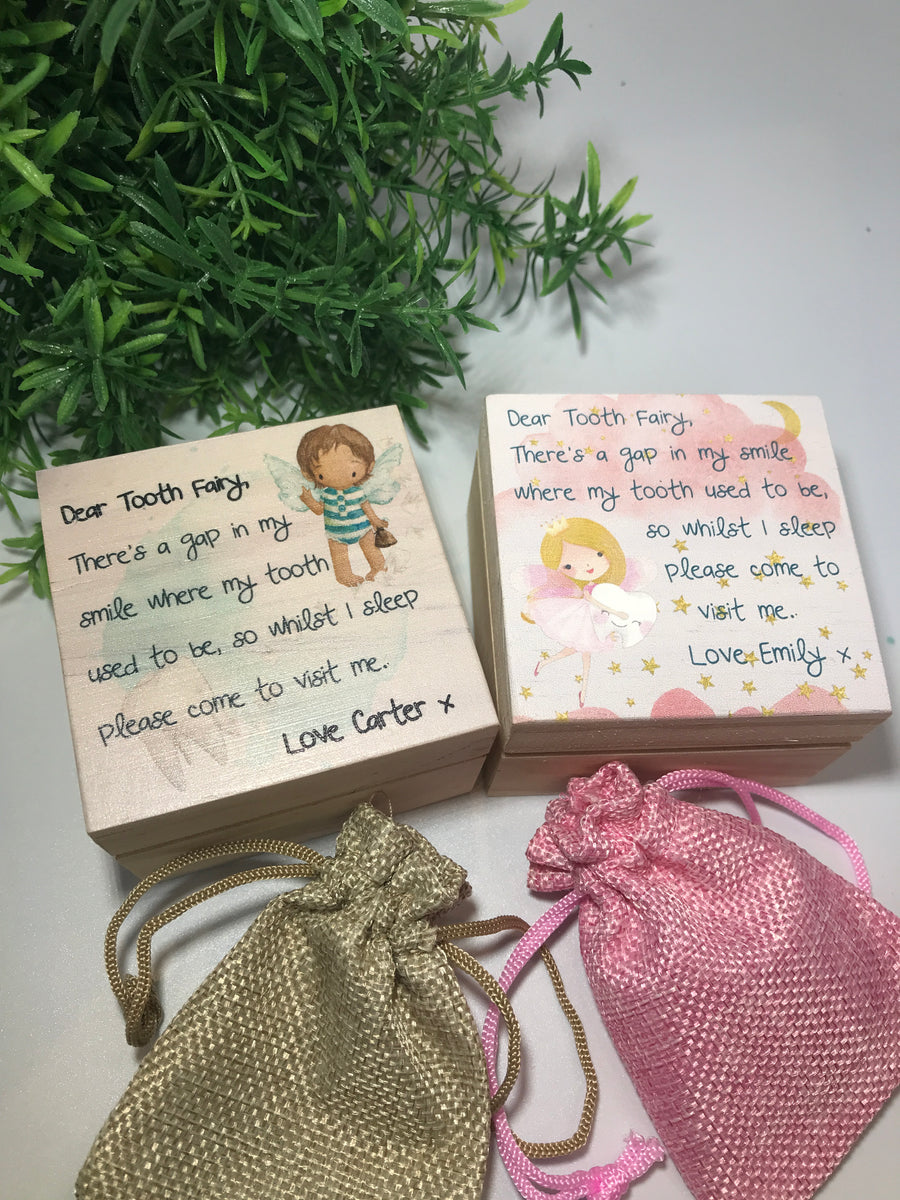 Dear Tooth Fairy,
There's a gap in my
smile where my tooth
used to be, so whilst I sleep
please come to visit me.
Love Carter x
Dear Tooth Fairy,
There's a gap in my smile
where my tooth used to be,
so whilst I sleep
please come to
visit me.
Love Emily x